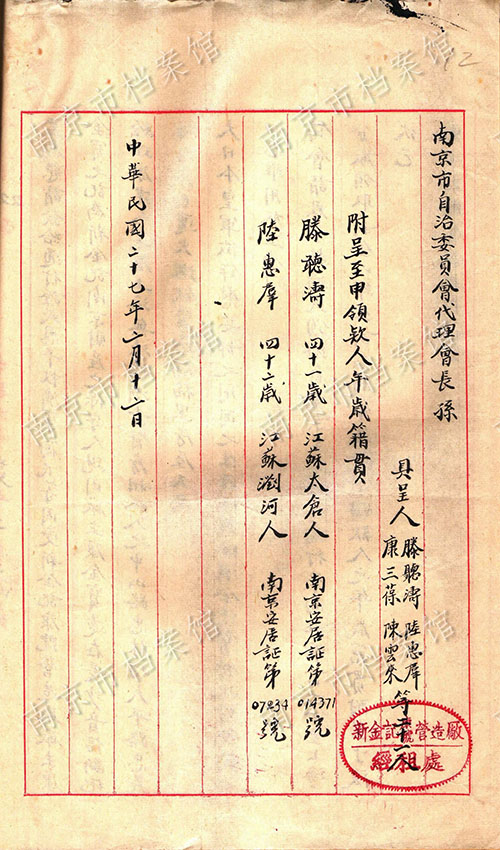 南京市自治委員會代理會長孫
具呈人 滕聰濤 陸惠犀
康三葆 陳雲朱 等二十一人
附呈至申領欵人年歲籍貫
滕聰濤 四十一歲 江蘇太倉人 南京安居証第014371號
陸惠犀 四十二歲 江蘇瀏河人 南京安居証第07234號
中華民國二十七年二月十二日
新金記 營造廠
經租處
南京市档案馆